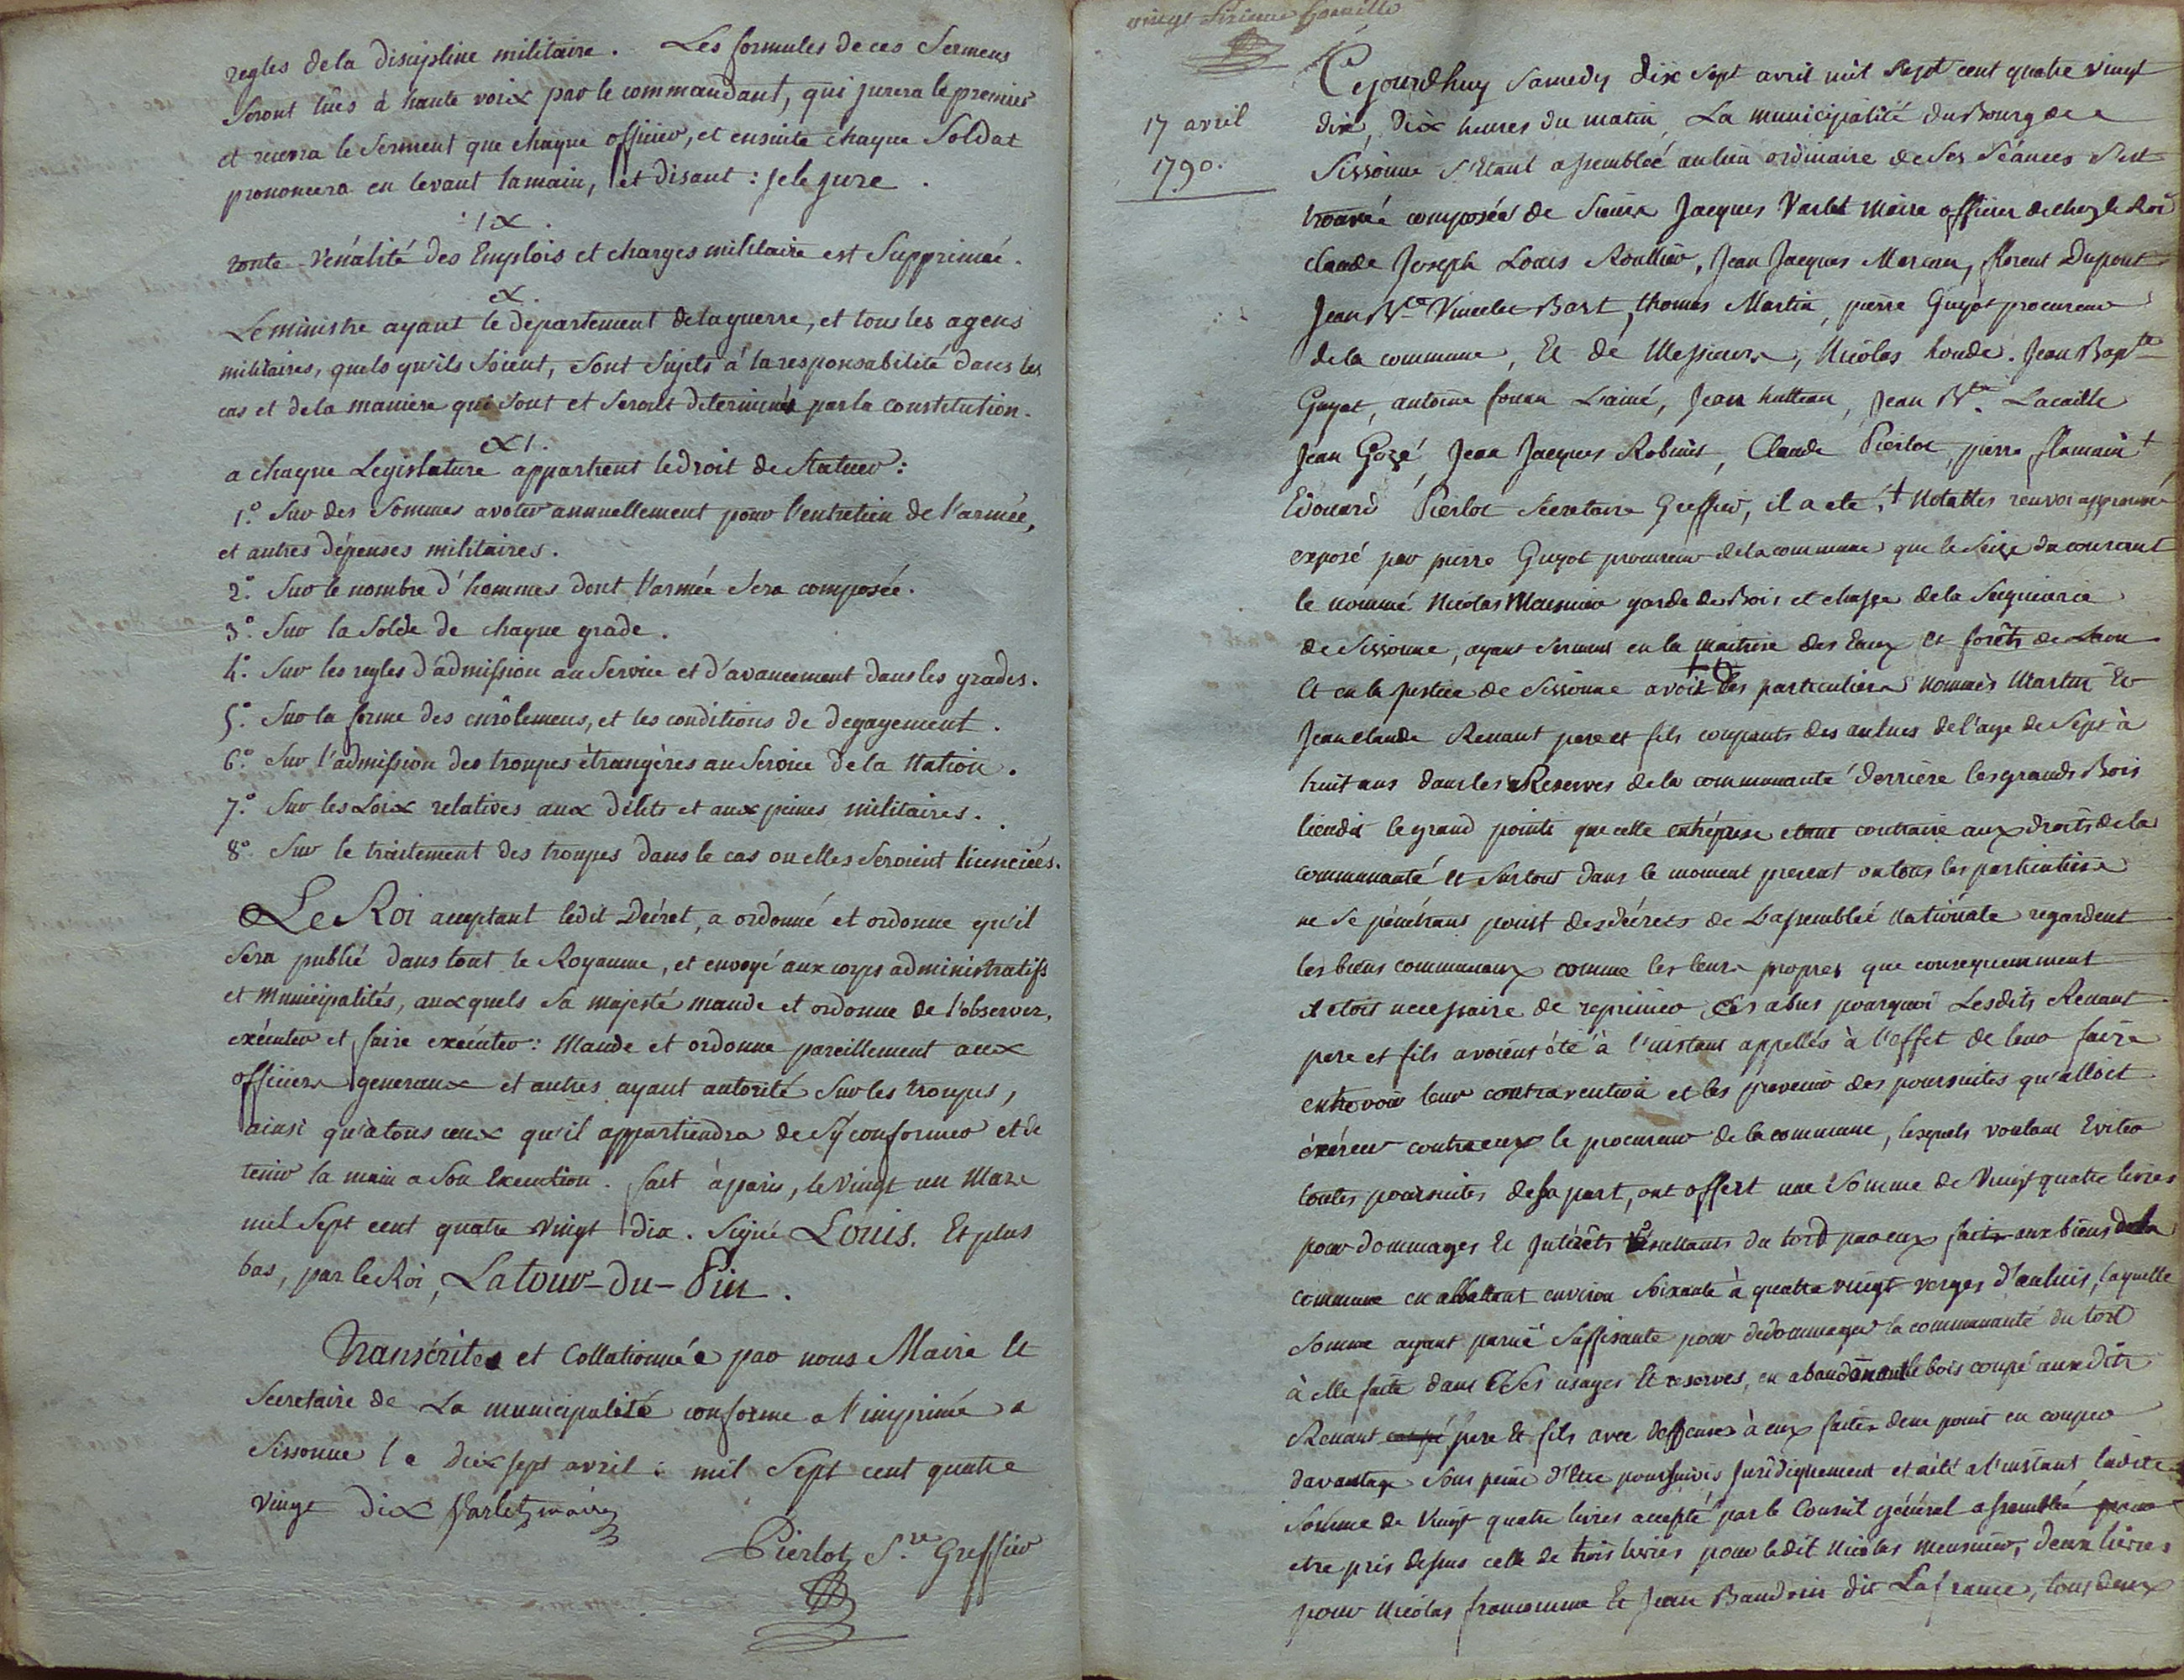 regles dela discipline militaire. Les formules de ces Sermens
Seront lûes à haute voix par le commandant, qui jurera le premier
et recevra le Serment que chaque officier, et ensuite chaque Soldat
prononcera en levant lamain, et disant : je le jure.
IX.
toute Vénalité des Emplois et charges militaire est Supprimée.
X.
Le ministre ayant le departement delaguerre, et tous les agens
militaires, quels qu'ils Soient, Sont Sujets à la responsabilité dans les
cas et dela maniere qui Sont et Seront determinés parla constitution.
XI.
a chaque Legislature appartient le droit de Statuer :
1.° Sur des Sommes avoter annuellement pour l'entretien de l'armée,
et autres dépenses militaires.
2.° Sur le nombre d'hommes dont l'armée Sera composée.
3.° Sur la Solde de chaque grade.
4.° Sur les regles d'admission au Service et d'avancement dans les grades.
5.° Sur la forme des enrôlemens, et les conditions de degagement.
6.° Sur l'admission des troupes étrangères au Service de la Nation.
7.° Sur les Loix relatives aux délits et aux peines militaires.
8.° Sur le traitement des troupes dans le cas ou elles Seroient licenciées.
Le Roi acceptant ledit Decret, a ordonné et ordonne qu'il
Sera publié dans tout le Royaume, et envoyé aux corps administratifs
et Municipalités, auxquels Sa majesté mande et ordonne de l'observer,
exécuter et faire exécuter : Mande et ordonne pareillement aux
officiers generaux et autres ayant autorité Sur les troupes,
ainsi qu'atous ceux qu'il appartiendra de S'y conformer et de
tenir la main a Son Execution. fait à paris, le Vingt un Mars
mil Sept cent quatre Vingt dix. Signé Louis. Et plus
bas, par le Roi, La tour-du-Pin.
Transcrites et Collationnée par nous Maire Et
Secretaire de La municipalité conforme a l'imprimé a
Sissonne le dix sept avril : mil Sept cent quatre
Vingt dix Varlet, maire
Pierlot, S.re Greffier
vingt Sixieme feuille
17 avril
1790.
Cejourdhuy Samedy dix Sept avril mil Sept cent quatre Vingt
dix, Dix heures du matin, La municipalité du Bourg de
Sissonne S'Etant assembleé aulieu ordinaire de Ses Séances S'est
trouvée composée de Sieurs Jacques Varlet Maire officier de chez le Roi
claude Joseph Louis Roullier, Jean Jacques Marcau, florent Dupont
Jean B.te Vincelet Bart, thomas Martin, pierre Guyot procureur
de la commune, Et de Messieurs, Nicolas houde. Jean Bap.te
Guyot, antoine fouan L'ainé, Jean hutteau, Jean B.te Lacaille
Jean Gozé, Jean Jacques Robinis, Claude Pierlot, pierre flamain +
Edouard Pierlot Secretaire Greffier, il a eté, + Notables renvoi approuvé
exposé par pierre Guyot procureur delacommune que le Seize du courant
le nommé Nicolas Meusnier garde de Bois et chasse de la Seigneurie
de Sissonne, ayant Serment en la maitrise des Eaux et forêts de Laon
Et en la justice de Sissonne avoit des particuliers nommés Martin Et
Jean claude Renaut pere et fils coupants des aulnes de l'age de Sept à
huit ans dans les Reserves de la communauté derrière les grands Bois
lieudit le grand pointi que cette entreprise etant contraire aux droits de la
communauté et Surtout dans le moment present ou tous les particuliers
ne Se pénétrans point des décrets de L'assembleé Nationale regardent
les biens communaux comme les leurs propres que consequemment
il etoit necessaire de reprimer Ces abus pourquoi Lesdits Renaut
pere et fils avoient été à l'instant appellés à l'effet de leur faire
entrevoir leur contravention et les prevenir des poursuites qu'alloit
exércer contre eux le procureur de la commune, lesquels voulant Eviter
toutes poursuites de Sa part, ont offert une Somme de Vingt quatre livres
pour dommages Et Intérêts résultants du tord par eux faits aux biens dela
commune en abbattant environ Soixante à quatre vingt verges d'aulnis, laquelle
Somme ayant parue Suffisante pour dedommager la communauté du tord
à elle faite dans Ses usages Et reserves, en abandonant le bois coupé auxdits
Renaut pere Et fils avec deffenses à eux faites dene point en couper
davantage Sous peine d'Etre poursuivis Juridiquement et a été a l'instant ladite
Somme de Vingt quatre livres accepté par le Conseil général assemblé pour
etre pris dessus celle de trois livres pour ledit Nicolas Meusnier, deux livres
pour Nicolas francomme Et Jean Baudoin dit Lafrance, tous deux